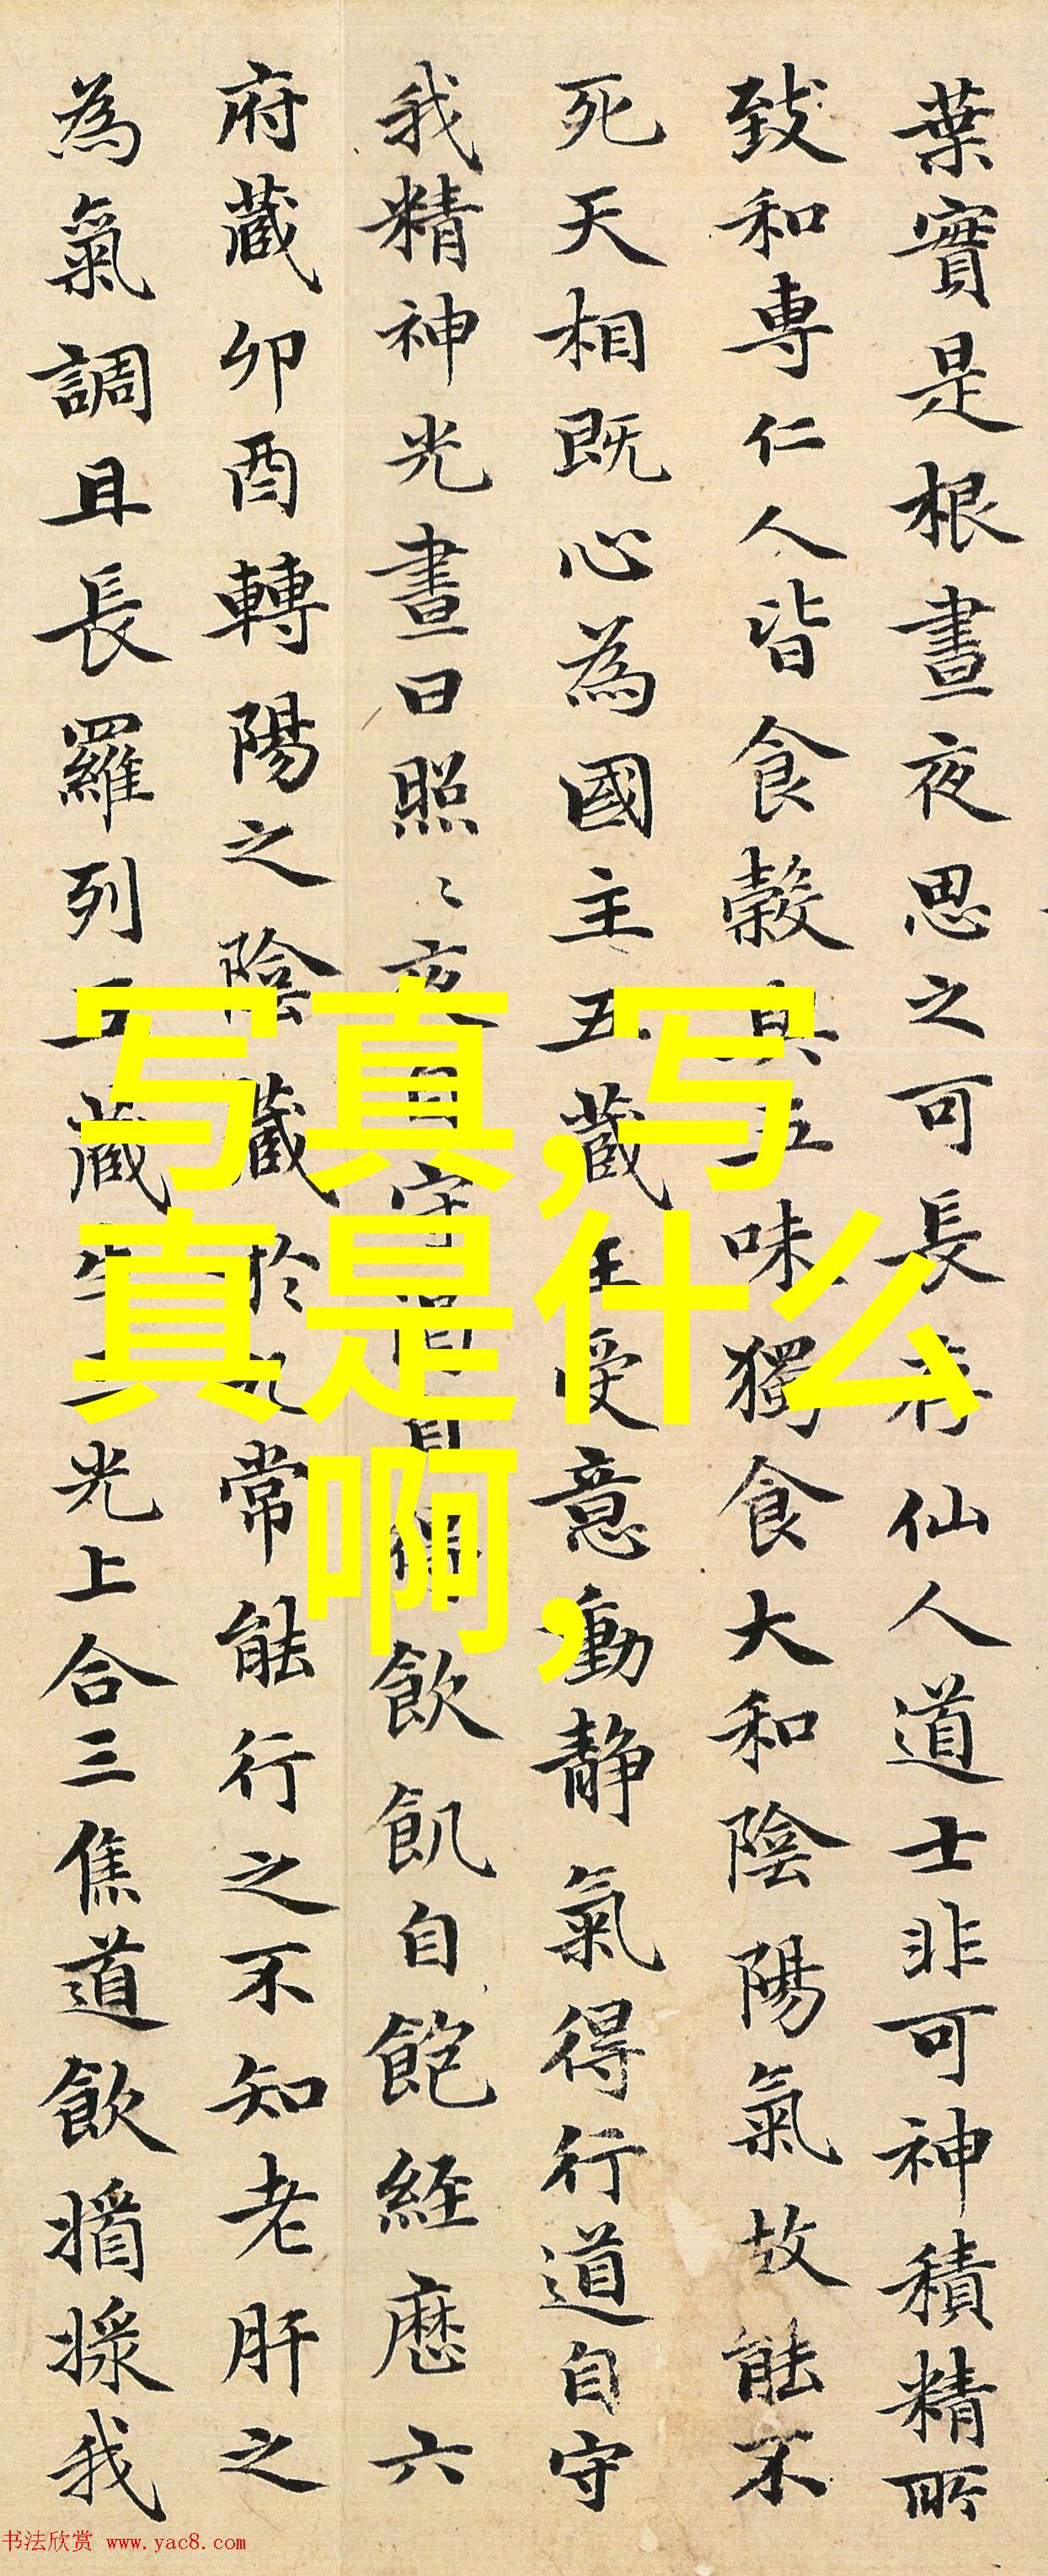 葉實是根晝夜思之可長存仙人道士非可神積精所
致和專仁人皆食穀與五味獨食大和陰陽氣故能不
死天相既心為國主五藏王受意動静氣得行道自守
我精神光晝日照〻夜自守渴自得飲飢自飽經歷六
府藏卯酉轉陽之陰藏於九常能行之不知老肝之
為氣調且長羅列五藏生三光上合三焦道飲我
写真,写
真是什么
啊,
书法欣赏 www.yac8.com